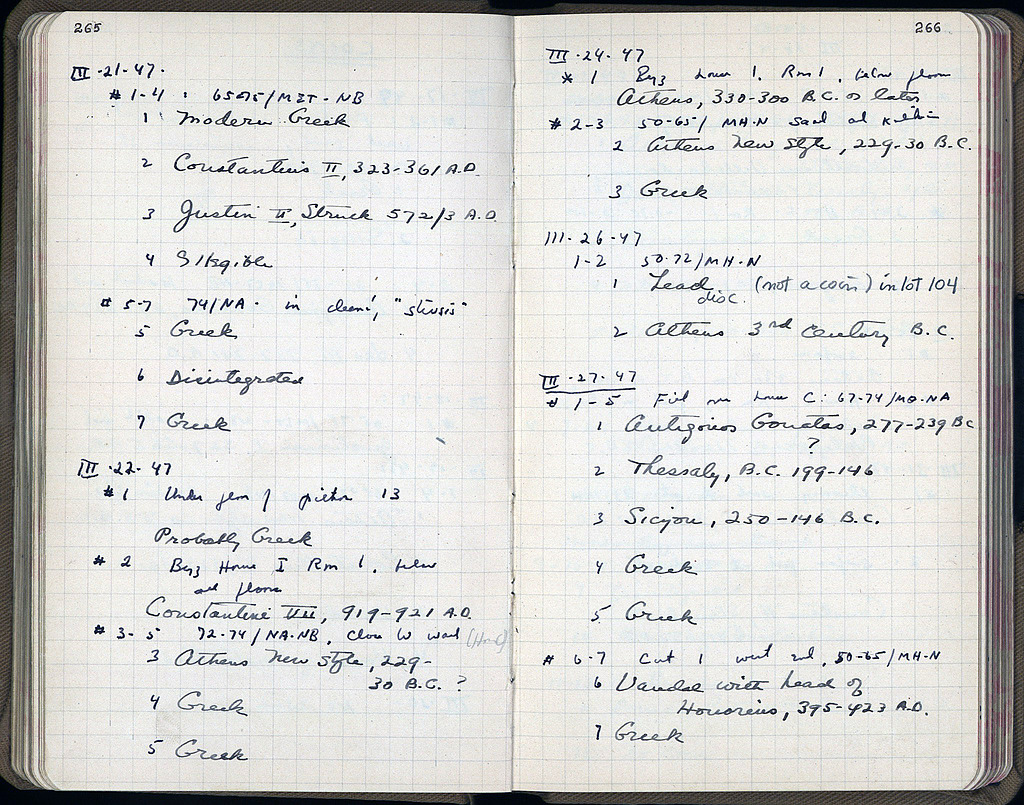 265
III-21-47.
# 1-4 : 65-75/MZT-NB
1 Modern Greek
2 Constantius II, 323-361 A.D.
3 Justin II, Struck 572/3 A.D.
4 Illegible
# 5-7 74/NA. in
5 Greek
6 Disintegrated
7 Greek
III-22-47
# 1 Under floor of pithos 13
Probably Greek
# 2 Byz House I Rm 1. below
old floor
Constantine VII, 919-921 A.D.
# 3-5 72-74/NA-NB, close W wall
3 Athens New Style, 229-
30 B.C. ?
4 Greek
5 Greek
266
III-24-47
* 1 Byz House 1. Rm 1. below floor
Athens, 330-300 B.C. or later
# 2-3 50-65/MH-N
2 Athens New Style, 229-30 B.C.
3 Greek
III-26-47
1-2 50-72/MH-N
1 Lead (not a coin) in lot 104
disc.
2 Athens 3rd Century B.C.
III-27-47
# 1-5 C: 67-74/MQ-NA
1 Antigonos Gonatas, 277-239 BC
?
2 Thessaly, B.C. 199-146
3 Sicyon, 250-146 B.C.
4 Greek
5 Greek
# 6-7 Cut 1 west end, 50-65/MH-N
6 Vandal with head of
Honorius, 395-423 A.D.
7 Greek